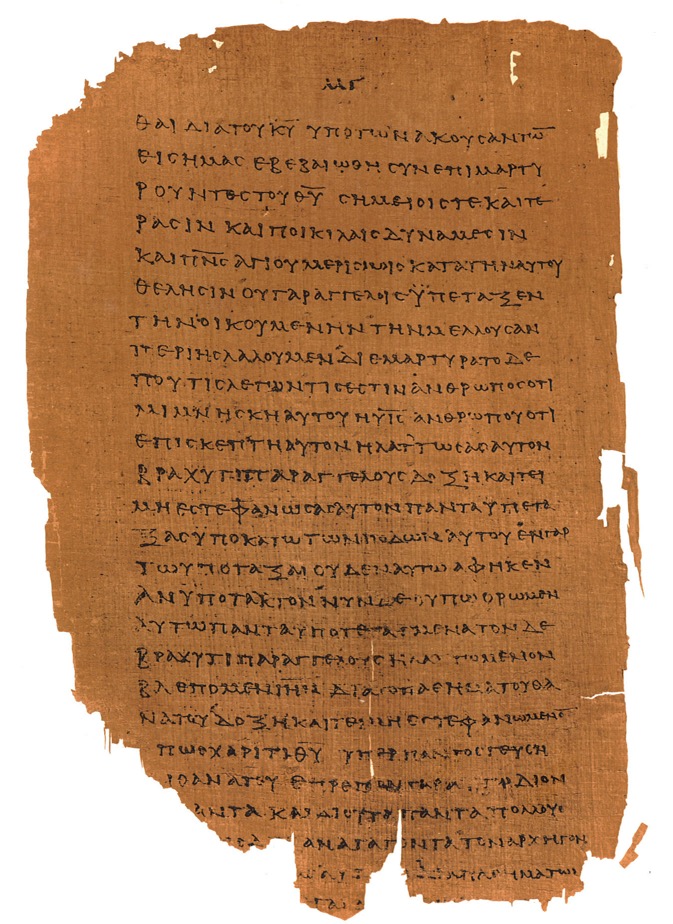 ΘΑΙ ΔΙΑ ΤΟΥ Κ̅Υ̅ ΥΠΟ ΤΩΝ ΑΚΟΥϹΑΝΤΩ̅
ΕΙϹ ΗΜΑϹ ΕΒΕΒΑΙΩΘΗ ϹΥΝΕΠΙΜΑΡΤΥ
ΡΟΥΝΤΟϹ ΤΟΥ Θ̅Υ̅ ϹΗΜΕΙΟΙϹ ΤΕ ΚΑΙ ΤΕ
ΡΑϹΙΝ ΚΑΙ ΠΟΙΚΙΛΑΙϹ ΔΥΝΑΜΕϹΙΝ
ΚΑΙ Π̅Ν̅Ϲ̅ ΑΓΙΟΥ ΜΕΡΙϹΜΟΙϹ ΚΑΤΑ ΤΗΝ ΑΥΤΟΥ
ΘΕΛΗϹΙΝ ΟΥ ΓΑΡ ΑΓΓΕΛΟΙϹ ΫΠΕΤΑΞΕΝ
ΤΗΝ ΟΙΚΟΥΜΕΝΗΝ ΤΗΝ ΜΕΛΛΟΥϹΑΝ
ΠΕΡΙ ΗϹ ΛΑΛΟΥΜΕΝ ΔΙΕΜΑΡΤΥΡΑΤΟ ΔΕ
ΠΟΥ ΤΙϹ ΛΕΓΩΝ ΤΙϹ ΕϹΤΙΝ ΑΝΘΡΩΠΟϹ ΟΤΙ
ΜΙΜΝΗϹΚΗ ΑΥΤΟΥ Η Υ̅Ι̅Ϲ̅ ΑΝΘΡΩΠΟΥ ΟΤΙ
ΕΠΙϹΚΕΠΤΗ ΑΥΤΟΝ ΗΛΑΤΤΩϹΑϹ ΑΥΤΟΝ
ΒΡΑΧΥ ΤΙ ΠΑΡ ΑΓΓΕΛΟΥϹ ΔΟΞΗ ΚΑΙ ΤΕΙ
ΜΗ ΕϹΤΕΦΑΝΩϹΑϹ ΑΥΤΟΝ ΠΑΝΤΑ ΥΠΕΤΑ
ΞΑϹ ΥΠΟΚΑΤΩ ΤΩΝ ΠΟΔΩΝ ΑΥΤΟΥ ΕΝ ΓΑΡ
ΤΩ ΥΠΟΤΑΞΑΙ ΟΥΔΕΝ ΑΥΤΩ ΑΦΗΚΕΝ
ΑΝΥΠΟΤΑΚΤΟΝ ΝΥΝ ΔΕ ΟΥΠΩ ΟΡΩΜΕΝ
ΑΥΤΩ ΠΑΝΤΑ ΥΠΟΤΕΤΑΓΜΕΝΑ ΤΟΝ ΔΕ
ΒΡΑΧΥ ΤΙ ΠΑΡ ΑΓΓΕΛΟΥϹ ΗΛΑΤΤΩΜΕΝΟΝ
ΒΛΕΠΟΜΕΝ Ι̅Η̅Ν̅ ΔΙΑ ΤΟ ΠΑΘΗΜΑ ΤΟΥ ΘΑ
ΝΑΤΟΥ ΔΟΞΗ ΚΑΙ ΤΕΙΜΗ ΕϹΤΕΦΑΝΩΜΕΝΟ̅
ΠΩϹ ΧΑΡΙΤΙ Θ̅Υ̅ ΥΠΕΡ ΠΑΝΤΟϹ ΓΕΥϹΗ
ΘΑΝΑΤΟΥ ΕΠΡΕΠΕΝ ΓΑΡ ΔΙ ΟΝ
ΑΝΤΑ ΚΑΙ ΔΙ ΟΥ ΤΑ ΠΑΝΤΑ ΠΟΛΛΟΥϹ
ΑΓΑΓΟΝΤΑ ΤΟΝ ΑΡΧΗΓΟΝ